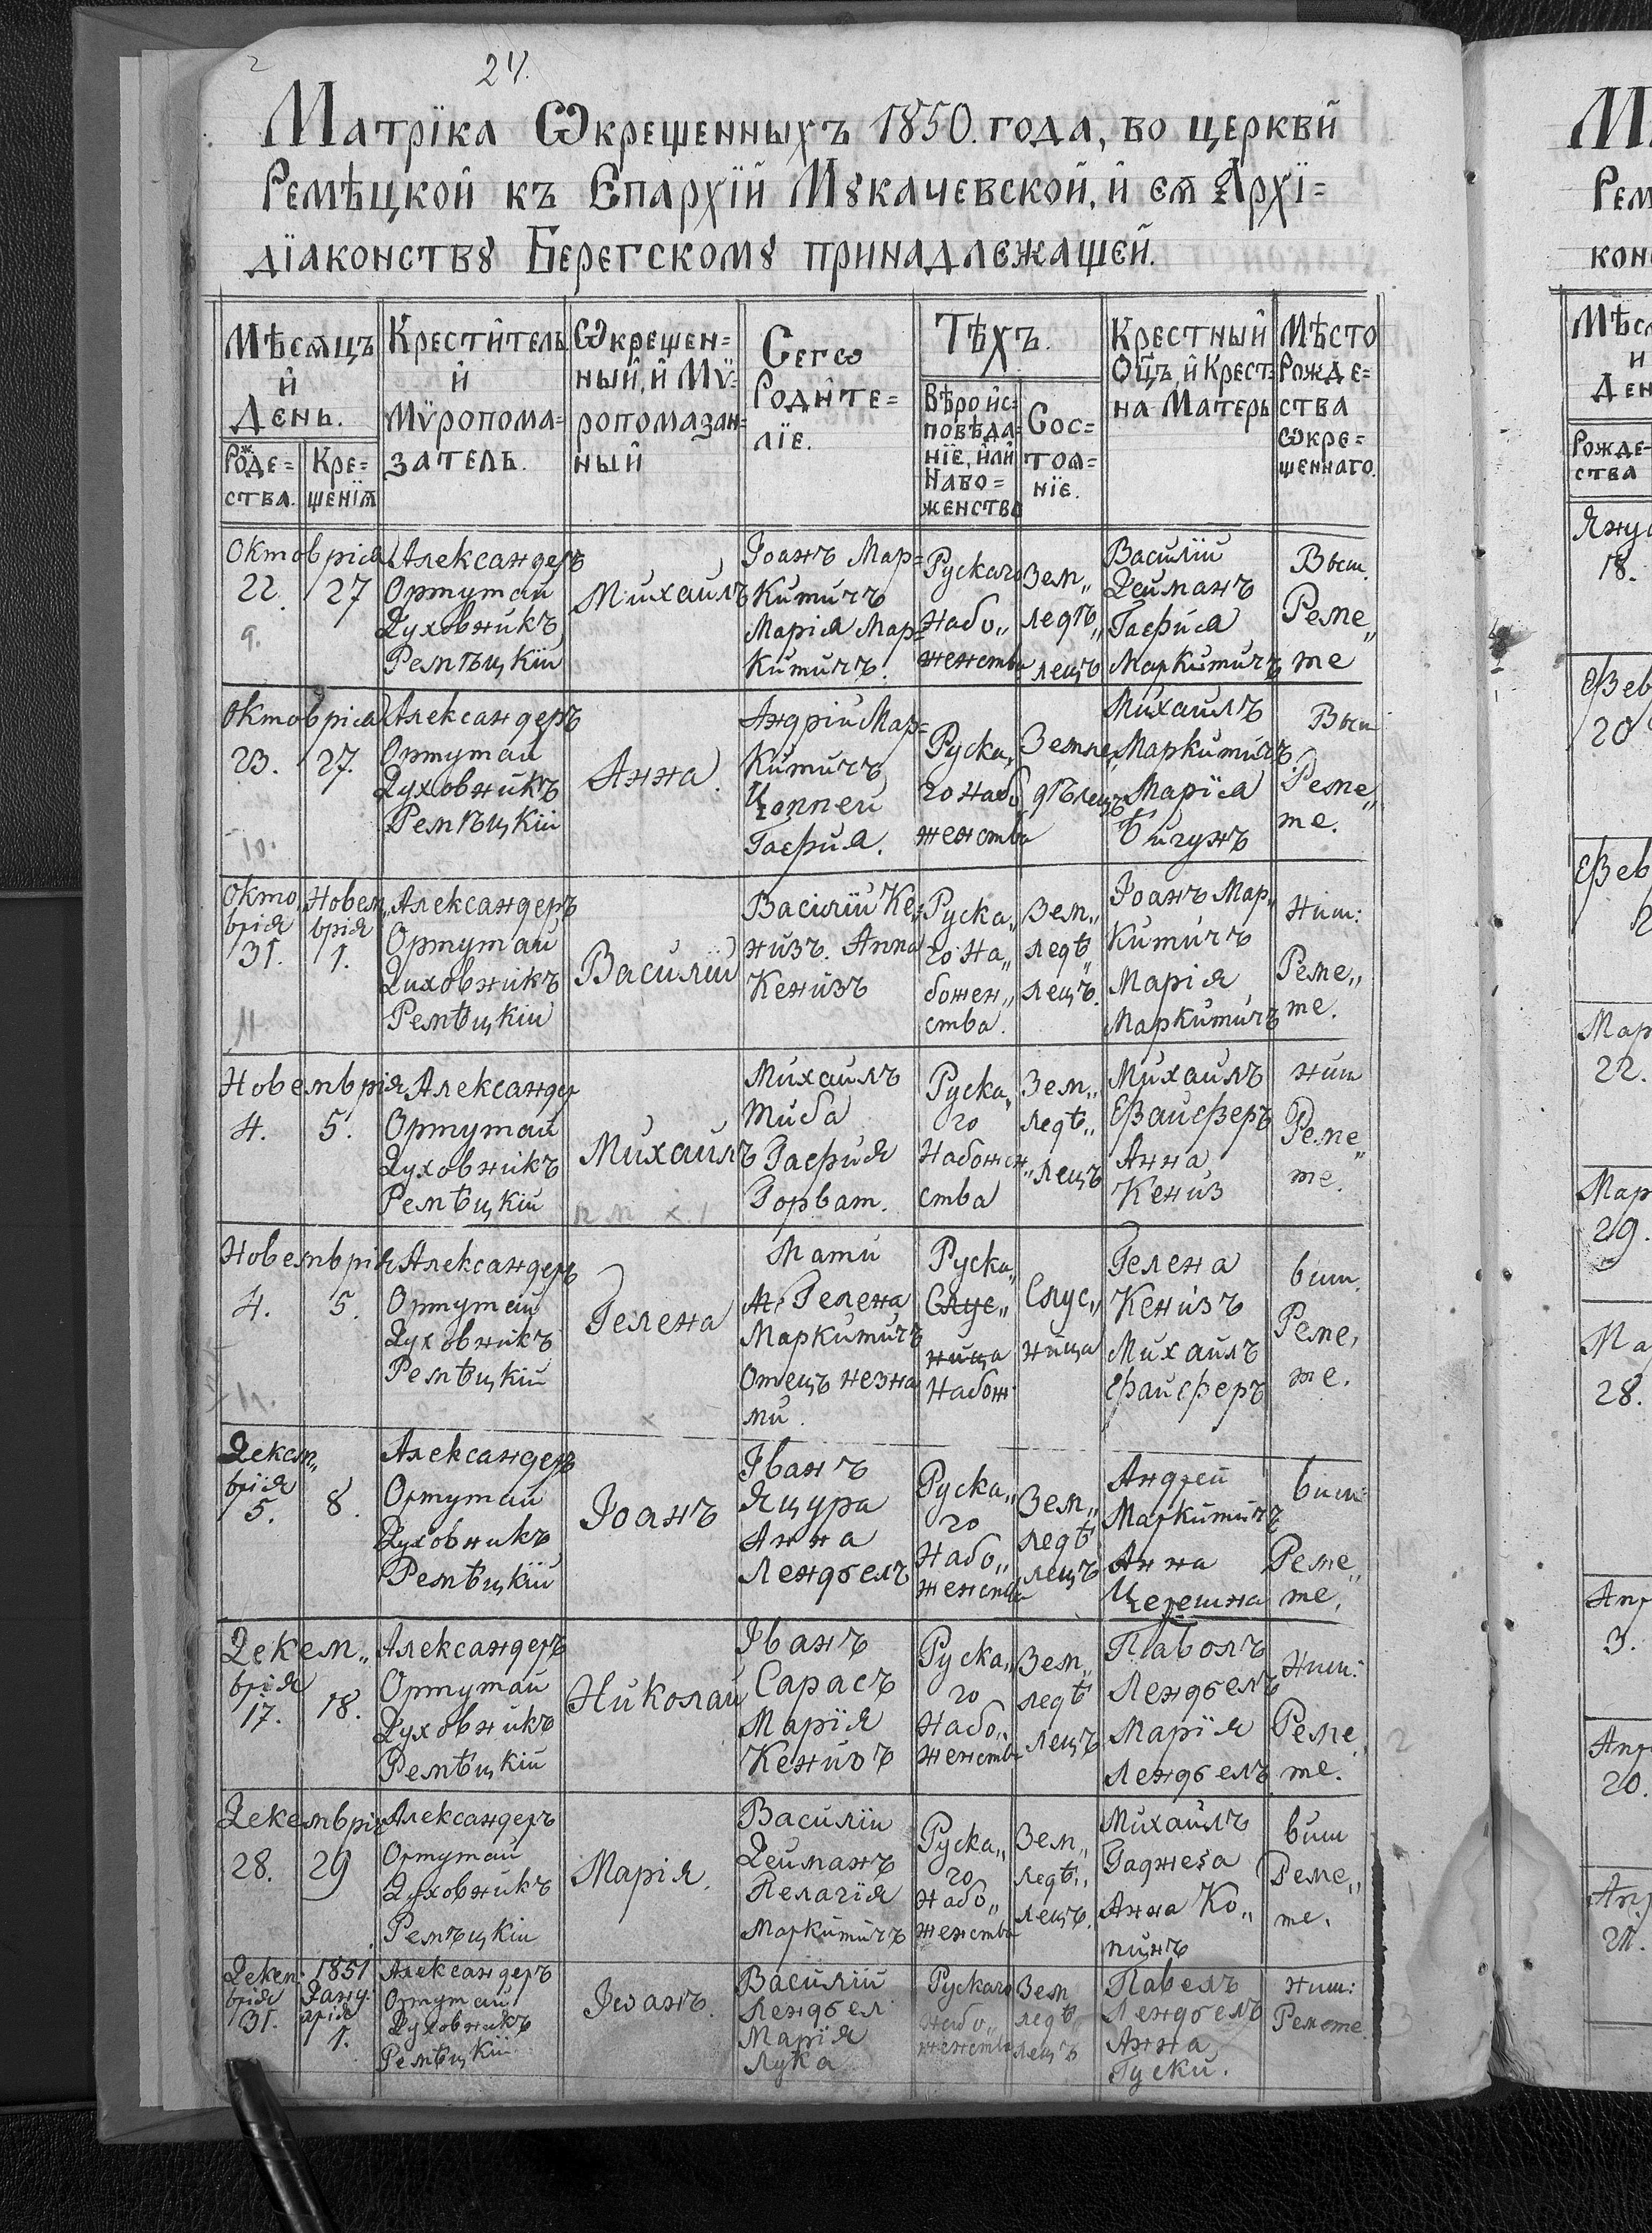 24.
Матрїка Ѡкрещенныхъ 1850. года, во церкви̂
Ремѣцкой къ Єпархїй Мꙋкачевской, й єѧ Архї=
дїаконствꙋ Берегскомꙋ принадлежащей.
Мѣсѧцъ
й
День.
Рожде=
ства.
Кре=
щенїѧ
Крестйтель
й
Мѵропома=
затель.
Ѡкрещен=
ный, й Мѵ=
ропомазан=
ный
Сегѡ
Родйте=
лїе.
Тѣхъ.
Вѣройс=
повѣда=
нїе, йлй
Набо=
женство
Сос=
тоѧ=
нїе.
Крестный
Оц҃ъ, й Крест=
на Матерь
Мѣсто
Рожде=
ства
ѡкре=
щеннаго.
Октовріа
22.
27
9.
Александеръ
Ортутай
Духовникъ
Ремѣцкій
Михаилъ
Іоанъ Мар=
Китичъ
Марія Мар=
Китичъ.
Рускаго
Набо„
женства
Зем„
ледѣ„
лецъ
Василій
Дейманъ
Гафия
Маркитичъ
Выш.
Реме„
те
Октовріа
23.
27.
10.
Александеръ
Ортутай
Духовникъ
Ремѣцкій
Анна.
Андрій Мар=
Китичъ
Цоппей
Гафия.
Руска„
го Набо
женства
Земле„
дѣлецъ
Михаилъ
Маркитичъ
Марїа
Бигунъ
Выш
Реме„
те.
Окто„
врія
31.
Новем„
врія
1.
11
Александеръ
Ортутай
Духовникъ
Ремѣцкій
Василій
Василій Ке„
низъ. Anna
Кенизъ
Руска„
го На„
божен„
ства.
Зем„
ледѣ„
лецъ.
Іоанъ Мар„
Китичъ
Марія
Маркитичъ
Ниш:
Реме„
те.
Новемврія
4.
5.
Александер
Ортутай
Духовникъ
Ремѣцкій
Михаилъ
Михаилъ
Тиба
Гафия
Горват.
Руска„
го
Набожен„
ства
Зем„
ледѣ„
лецъ
Михаилъ
Файферъ
Анна
Кениз
Ниш
Реме„
те.
Новемврія
4.
5.
Александеръ
Ортутай
Духовникъ
Ремѣцкій
Гелена
Мати
Гелена
Маркитичъ
Отецъ незна
ми.
Руска„
Слус„
ница
Набож
Слус„
ница
Гелена
Кенизъ
Михаилъ
Файферъ
виш.
Реме,
те.
Декем„
врія
5.
8.
Александеръ
Ортутай
Духовникъ
Ремѣцкій
Іоанъ
Іванъ
Яцура
Анна
Лендєелъ
Руска„
го
Набо„
женства
Зем„
ледѣ
лецъ
Андрей
Маркитичъ
Анна
Церешна
виш:
Реме„
те.
Декем„
врія
17.
18.
Александеръ
Ортутай
Духовникъ
Ремѣцкій
Николай
Іванъ
Сарасъ
Марїя
Кенизъ
Руска„
го
Набо„
женства
Зем„
ледѣ
лецъ
Паволъ
Лендєелъ
Марїя
Лендєелъ
Ниш:
Реме
те.
2
Декемвріа
28.
29
Александеръ
Ортутай
Духовникъ
Ремѣцкій
Марія.
Василій
Дейманъ
Пелагія
Маркитичъ
Руска„
го
Набо„
женства
Зем„
ледѣ„
лецъ.
Михаилъ
Гаджега
Анна Ко„
пинъ
виш
Реме„
те.
Декем:
врія
31.
1851
Януа
арія
1.
Александеръ
Ортутай
Духовникъ
Ремѣцкій
Іоанъ.
Василій
Лендєел
Марїя
Лука
Рускаго
Набо„
женства
Зем
ледѣ„
лецъ
Павелъ
Лендєелъ
Анна
Гуски.
Ниш:
Ремете.
3